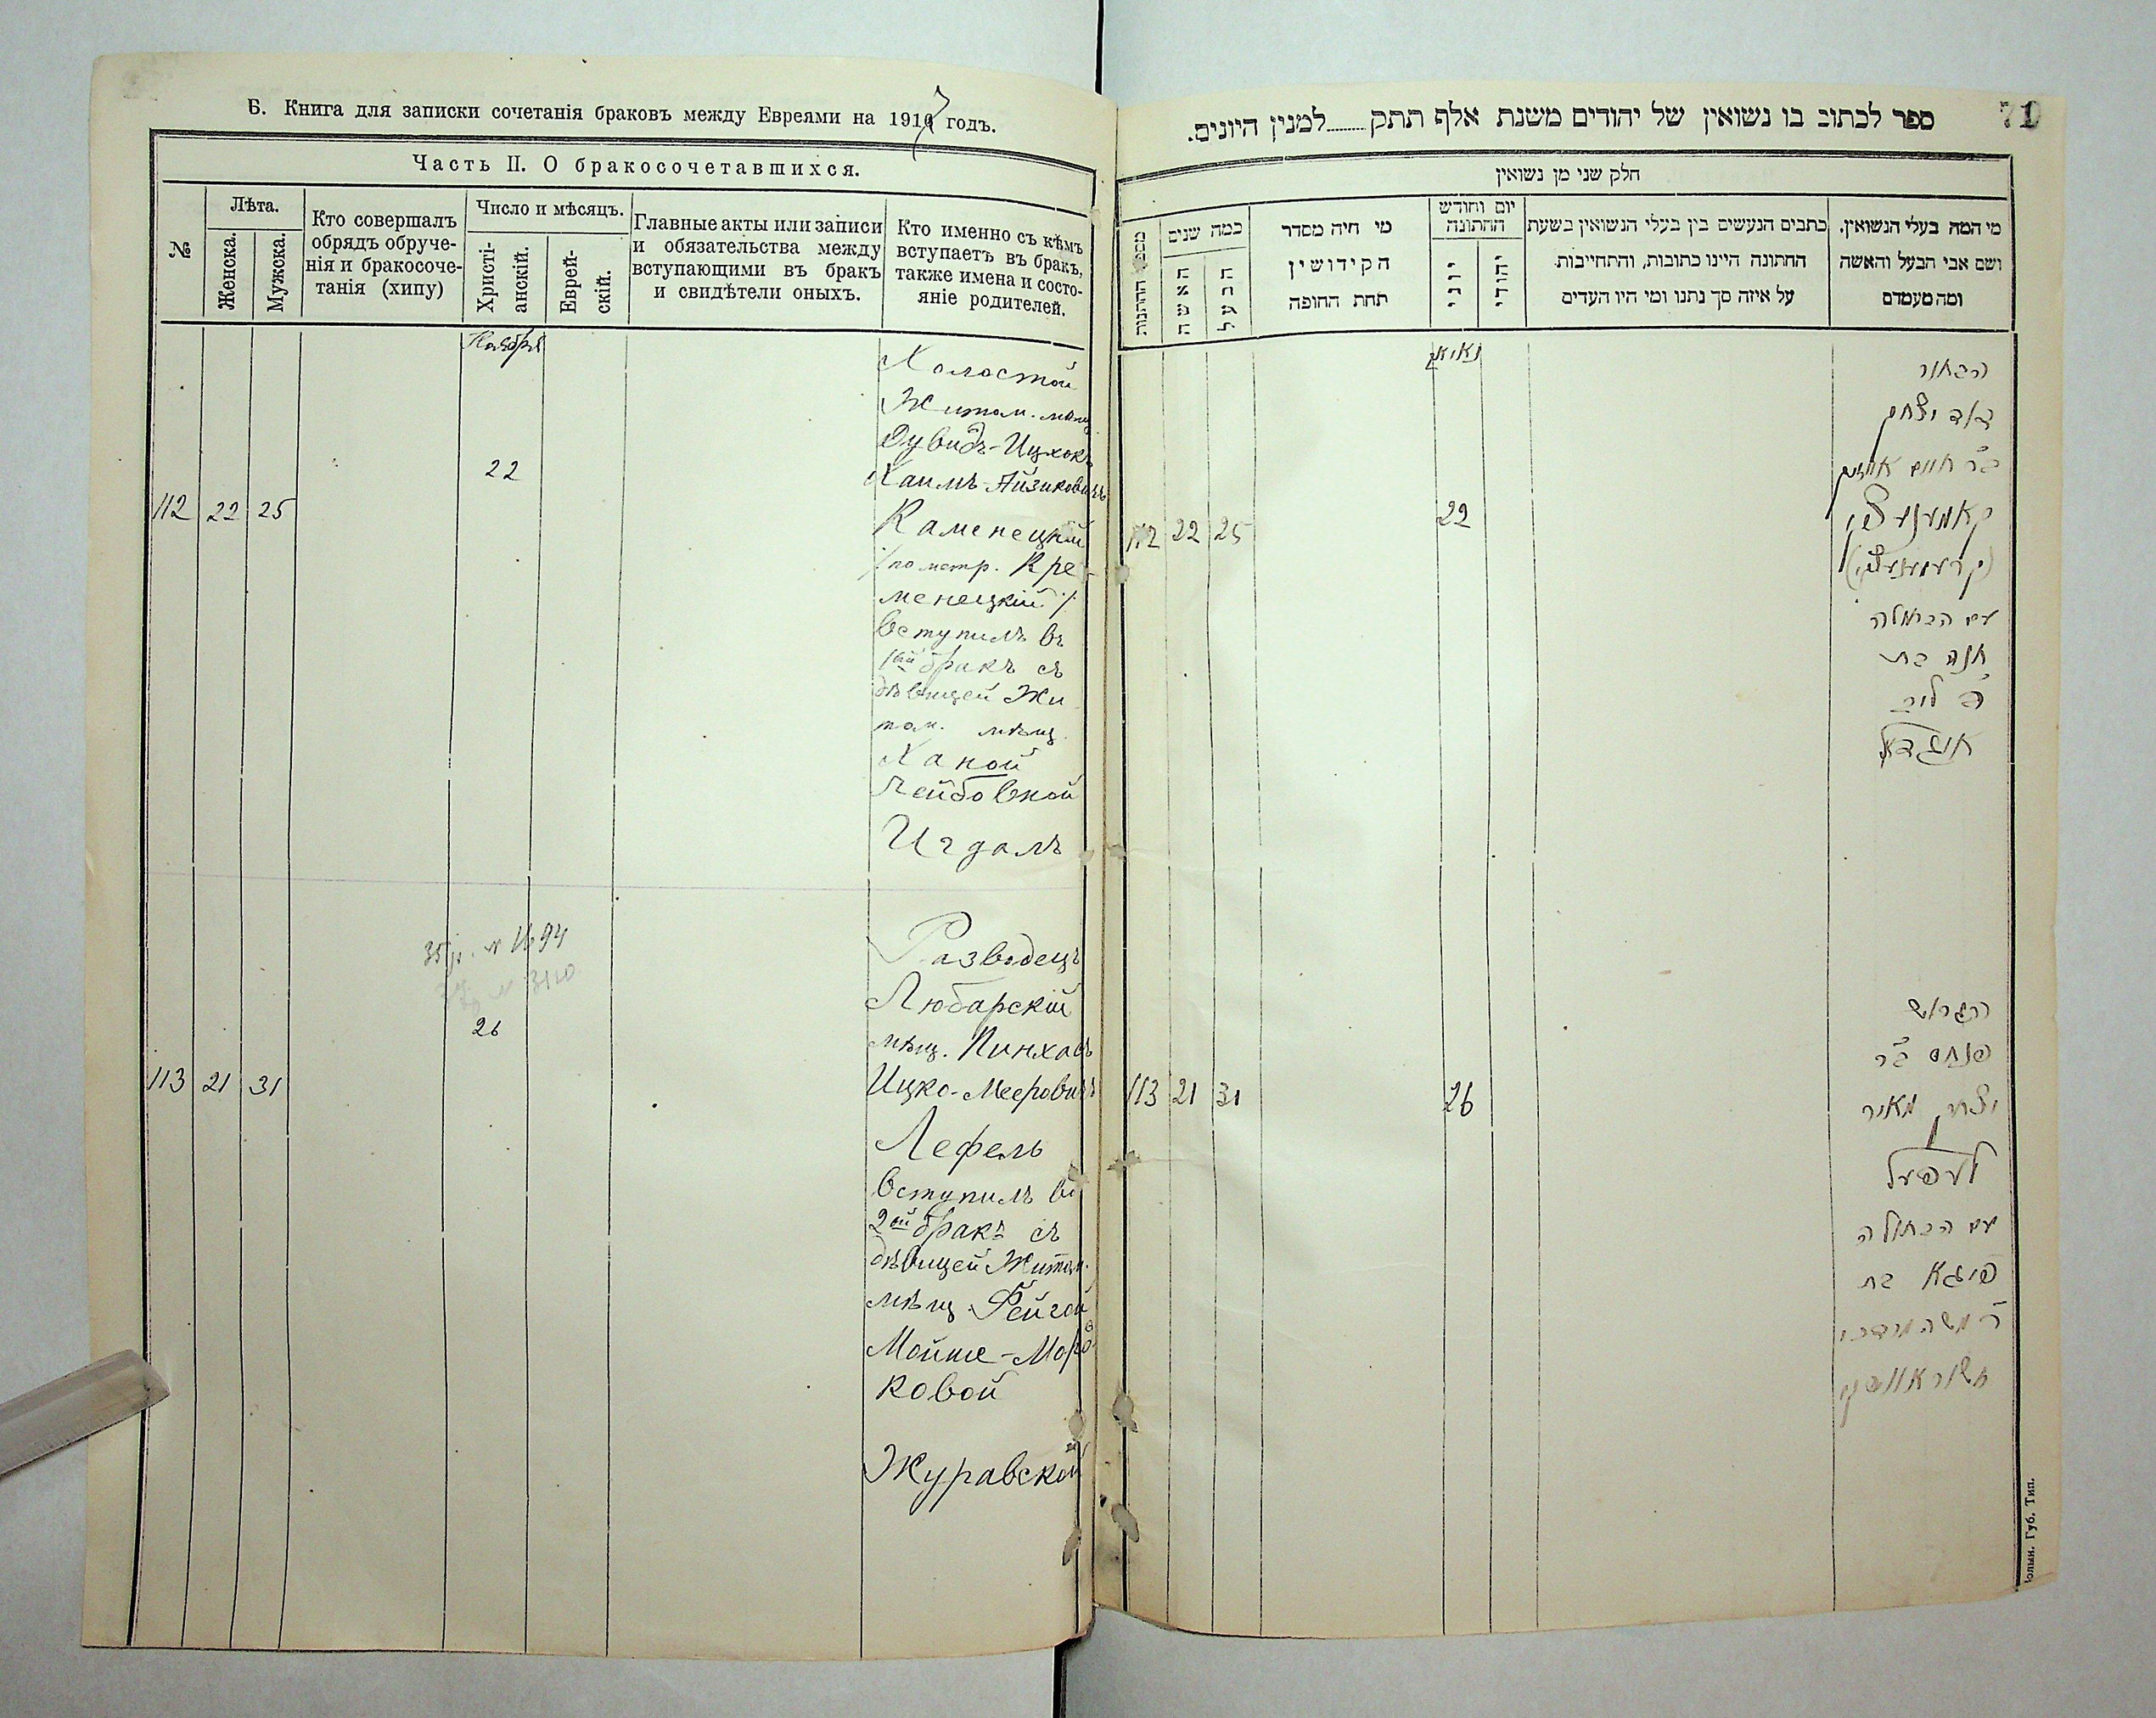 Б. Книга для записки сочетанія браковъ между Евреями на 1917 годъ.
Часть II. О бракосочетавшихся.
№
Лѣта.
Женска.
Мужска.
Кто совершалъ
обрядъ обруче-
нія и бракосоче-
танія (хипу)
Число и мѣсяцъ.
Христі-
анскій.
Еврей-
скій.
Главные акты или записи
и обязательства между
вступающими въ бракъ
и свидѣтели оныхъ.
Кто именно съ кѣмъ
вступаетъ въ бракъ,
также имена и состо-
яніе родителей.
Ноября
112 22 25
22
Холостой
Житом. мѣщ.
Дувидъ-Ицхокъ
Хаимъ-Айзиковичъ
Каменецкій
/по метр. Кре-
менецкій/
вступилъ въ
1ый бракъ съ
дѣвицей Жи
том. мѣщ.
Ханой
Лейбовной
Игдалъ
113 21 31
26
Разводецъ
Любарскій
мѣщ. Пинхасъ
Ицко-Мееровичъ
Лефель
вступилъ въ
2ой бракъ съ
дѣвицей Житом.
мѣщ. Фейгой
Мойше-Морд
ковой
Журавской
71
ספר לכתוב בו נשואין של יהודים משנת אלף תתק........למנין היונים.
חלק שני מן נשואין
מספר החתונות
כמה שנים
האשה
הבעל
מי היה מסדר
הקידושין
תחת החופה
יום וחודש
החתונה
יוני
יהודי
כתבים הנעשים בין בעלי הנשואין בשעת
החתונה היינו כתובות, והתחייבות
על איזה סך נתנו ומי היו העדים
מי המה בעלי הנשואין,
ושם אבי הבעל והאשה
ומה מעמדם
112 22 25
22
הבחור
דוד יצחק
ב"ר חיים אייזיק
קאמענעצקי
(קרעמענעצקי)
עם הבתולה
חנה בת
ר' ליב
איגדאל
113 21 31
26
הגרוש
פנחס ב"ר
יצחק מאיר
לעפעל
עם הבתולה
פייגא בת
ר' משה מרדכי
זשוראווסקי
Волын. Губ. Тип.